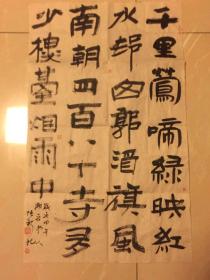 千里鶯啼綠映紅
水邨山郭酒旗風
南朝四百八十寺多
少樓臺烟雨中